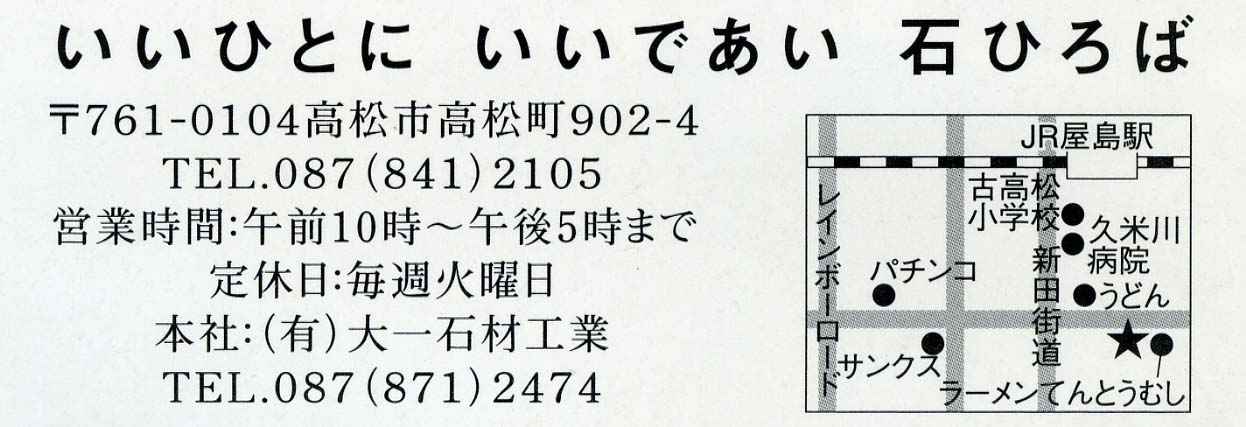 いいひとに いいであい 石ひろば
〒761-0104高松市高松町902-4
TEL.087(841)2105
営業時間:午前10時～午後5時まで
定休日:毎週火曜日
本社:(有)大一石材工業
TEL.087(871)2474
JR屋島駅
古高松
小学校
久米川
病院
レインボーロード
新田街道
パチンコ
うどん
サンクス
ラーメンてんとうむし